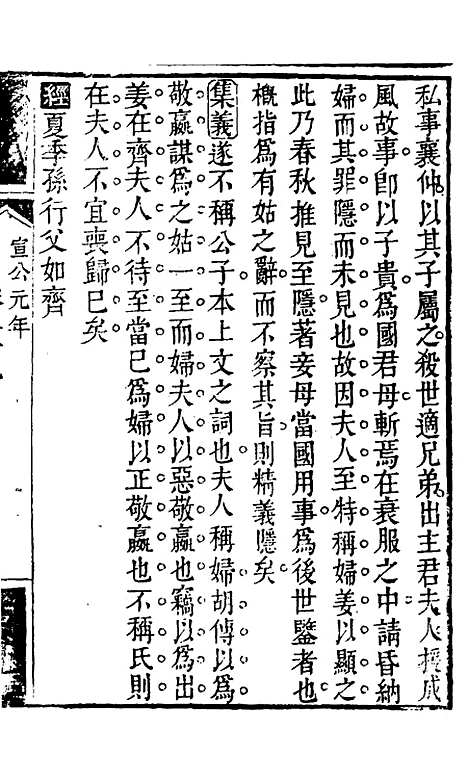 私事襄仲以其子屬之殺世適兄弟出主君夫人援成
風故事卽以子貴爲國君母斬焉在衰服之中請昏納
婦而其罪隱而未見也故因夫人至特稱婦姜以顯之
此乃春秋推見至隱著妾母當國用事爲後世鑒者也
槪指爲有姑之辭而不察其旨則精義隱矣
集義遂不稱公子本上文之詞也夫人稱婦胡傳以爲
敬嬴謀爲之姑一至而婦夫人以惡敬嬴也竊以爲出
姜在齊夫人不待至當已爲婦以正敬嬴也不稱氏則
在夫人不宜喪歸已矣
經夏季孫行父如齊
宣公元年